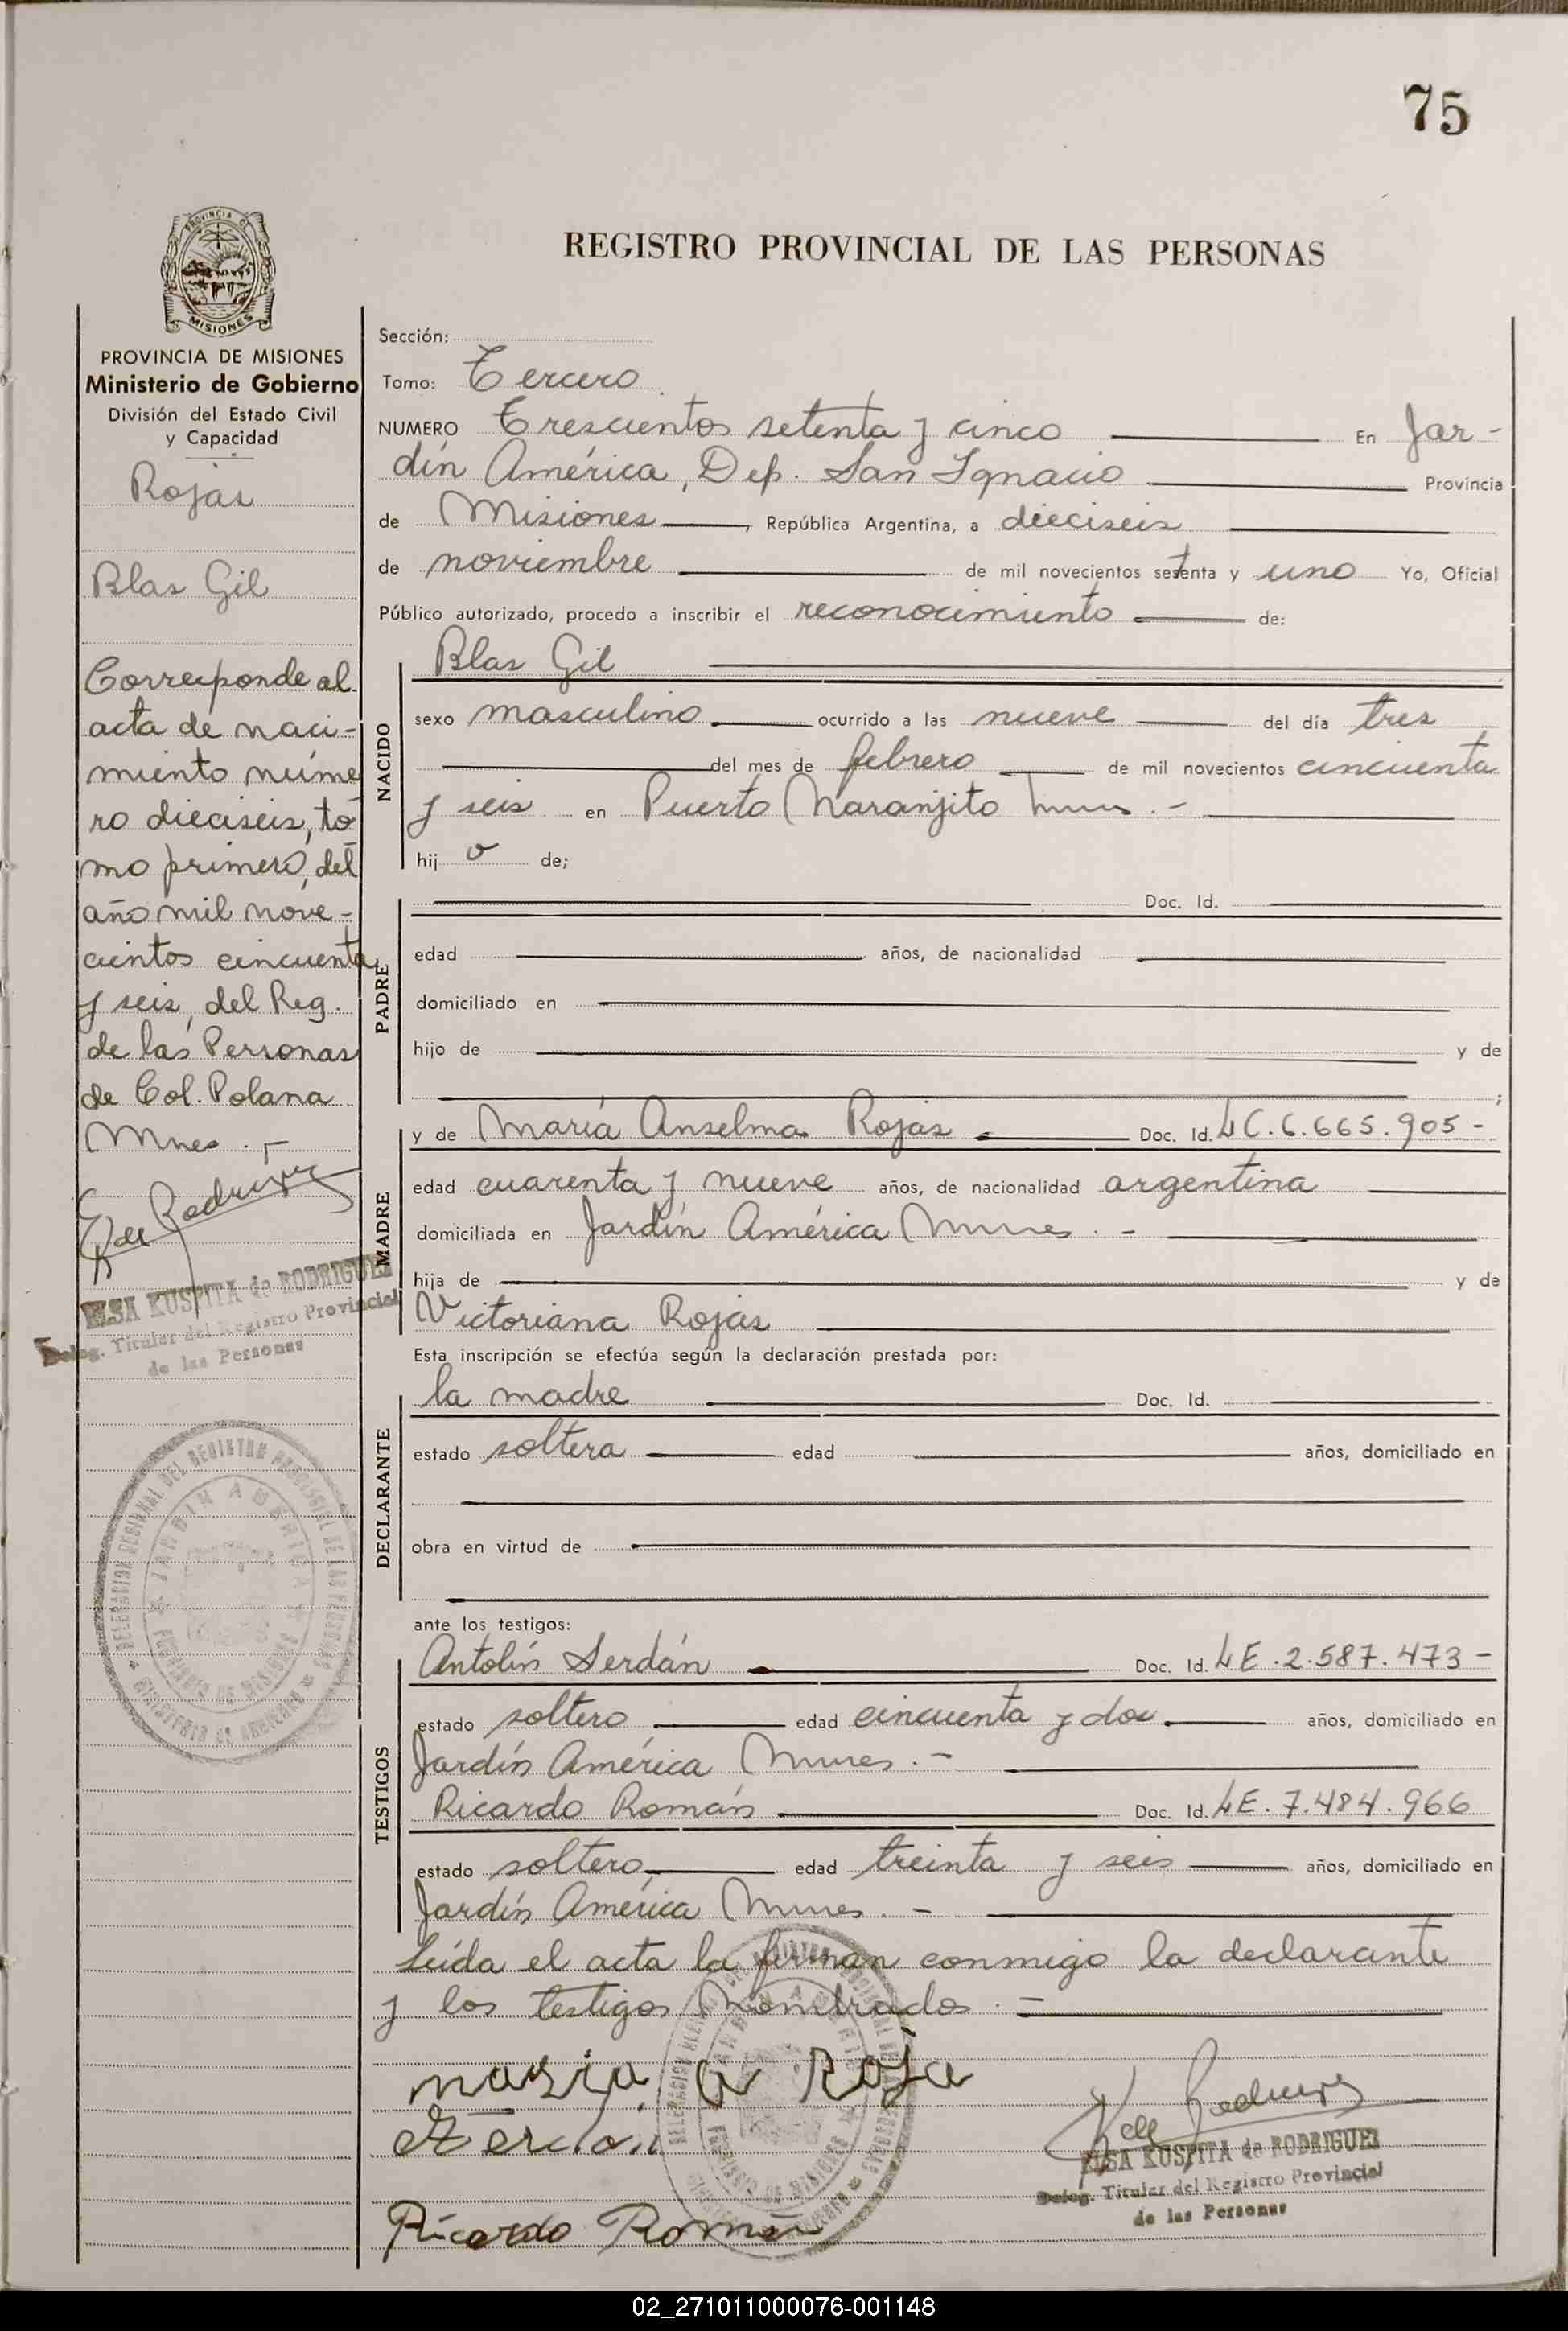 75
PROVINCIA DE
MISIONES
PROVINCIA DE MISIONES
Ministerio de Gobierno
División del Estado Civil
y Capacidad
Rojas
Blas Gil
Corresponde al
acta de naci-
miento núme
ro dieciseis, to
mo primero, del
año mil nove-
cientos cincuenta
y seis, del Reg.
de las Personas
de Col. Polana
Mnes.-
ELSA KUSPITA de RODRIGUEZ
Deleg. Titular del Registro Provincial
de las Personas
DELEGACION REGIONAL DEL REGISTRO PROVINCIAL DE LAS PERSONAS
JARDIN AMERICA
PROVINCIA DE MISIONES
MINISTERIO DE GOBIERNO
REGISTRO PROVINCIAL DE LAS PERSONAS
Sección:
Tomo: Tercero
NUMERO Trescientos setenta y cinco En Jar-
dín América, Dep. San Ignacio Provincia
de Misiones, República Argentina, a dieciseis
de noviembre de mil novecientos setenta y uno Yo, Oficial
Público autorizado, procedo a inscribir el reconocimiento de:
Blas Gil
NACIDO
sexo masculino ocurrido a las nueve del día tres
del mes de febrero de mil novecientos cincuenta
y seis en Puerto Naranjito Mnes.-
hij o de;
PADRE
Doc. Id.
edad años, de nacionalidad
domiciliado en
hijo de y de
;
MADRE
y de María Anselma Rojas Doc. Id. LC. 6.665.905-
edad cuarenta y nueve años, de nacionalidad argentina
domiciliada en Jardín América Mnes.-
hija de y de
Victoriana Rojas
Esta inscripción se efectúa según la declaración prestada por:
DECLARANTE
la madre Doc. Id.
estado soltera edad años, domiciliado en
obra en virtud de
ante los testigos:
TESTIGOS
Antolín Serdán Doc. Id. LE. 2.587.473-
estado soltero edad cincuenta y dos años, domiciliado en
Jardín América Mnes.-
Ricardo Román Doc. Id. LE. 7.484.966
estado soltero edad treinta y seis años, domiciliado en
Jardín América Mnes.-
Leída el acta la firman conmigo la declarante
y los testigos nombrados.-
maria a Roja
Ricardo Román
ELSA KUSPITA de RODRIGUEZ
Deleg. Titular del Registro Provincial
de las Personas
02_271011000076-001148